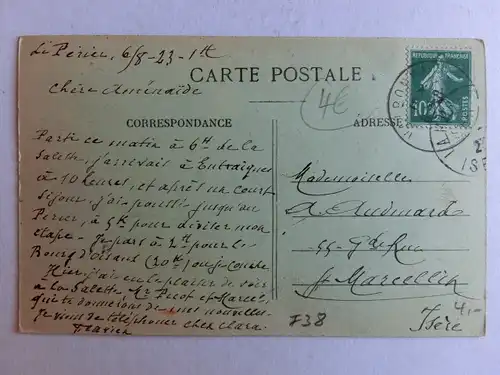 Le Périer, 6/8-23-1H
Chère Aménaïde
CARTE POSTALE
4€
CORRESPONDANCE
ADRESSE
Parti ce matin à 6H de la
Salette, j'arrivais à Entraigues
à 10 heures, et après un court
séjour j'ai poussé jusqu'au
Périer, à 5K pour diviser mon
étape. Je part à 2H pour le
Bourg d'Oisans (30K) où je couche
Hier j'ai eu le plaisir de voir
à la Salette Mr Picot et Marcel
que te donneront de mes nouvelles.
Je viens de téléphoner chez Clara.
Flavien
REPUBLIQUE FRANÇAISE
10
POSTES
Mademoiselle
A. Audouard
55 Gde Rue
St Marcellin
Isère
738
4,-